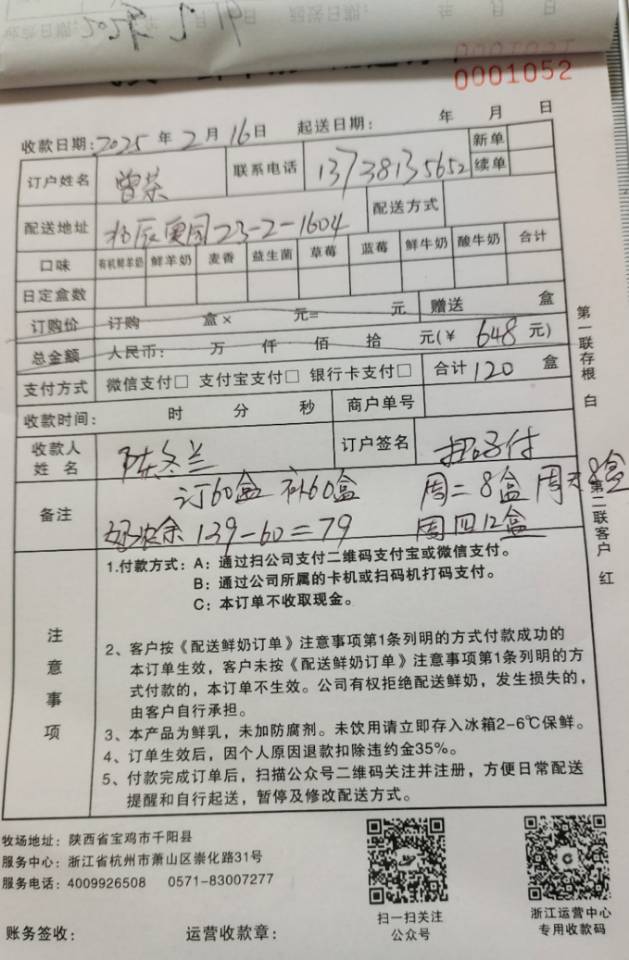 0001052
收款日期：2025年2月16日 起送日期： 年 月 日
订户姓名 曾荣 联系电话 13738135652 新单
续单
配送地址 23-2-1604 配送方式
口味 有机鲜羊奶 鲜羊奶 麦香 益生菌 草莓 蓝莓 鲜牛奶 酸牛奶 合计
日定盒数
订购价 订购 盒× 元= 元 赠送 盒
总金额 人民币： 万 仟 佰 拾 元(￥ 648 元)
支付方式 微信支付□ 支付宝支付□ 银行卡支付□ 合计 120 盒
收款时间： 时 分 秒 商户单号
收款人姓名 陈冬兰 订户签名 扫码付
备注 订60盒 补60盒 周二8盒 周末8盒
余139-60=79 周四12盒
第一联存根 白
第二联客户 红
注意事项
1.付款方式：A：通过扫公司支付二维码支付宝或微信支付。
B：通过公司所属的卡机或扫码机打码支付。
C：本订单不收取现金。
2、客户按《配送鲜奶订单》注意事项第1条列明的方式付款成功的
本订单生效，客户未按《配送鲜奶订单》注意事项第1条列明的方
式付款的，本订单不生效。公司有权拒绝配送鲜奶，发生损失的，
由客户自行承担。
3、本产品为鲜乳，未加防腐剂。未饮用请立即存入冰箱2-6℃保鲜。
4、订单生效后，因个人原因退款扣除违约金35%。
5、付款完成订单后，扫描公众号二维码关注并注册，方便日常配送
提醒和自行起送，暂停及修改配送方式。
牧场地址：陕西省宝鸡市千阳县
服务中心：浙江省杭州市萧山区崇化路31号
服务电话：4009926508 0571-83007277
扫一扫关注
公众号
浙江运营中心
专用收款码
账务签收： 运营收款章：